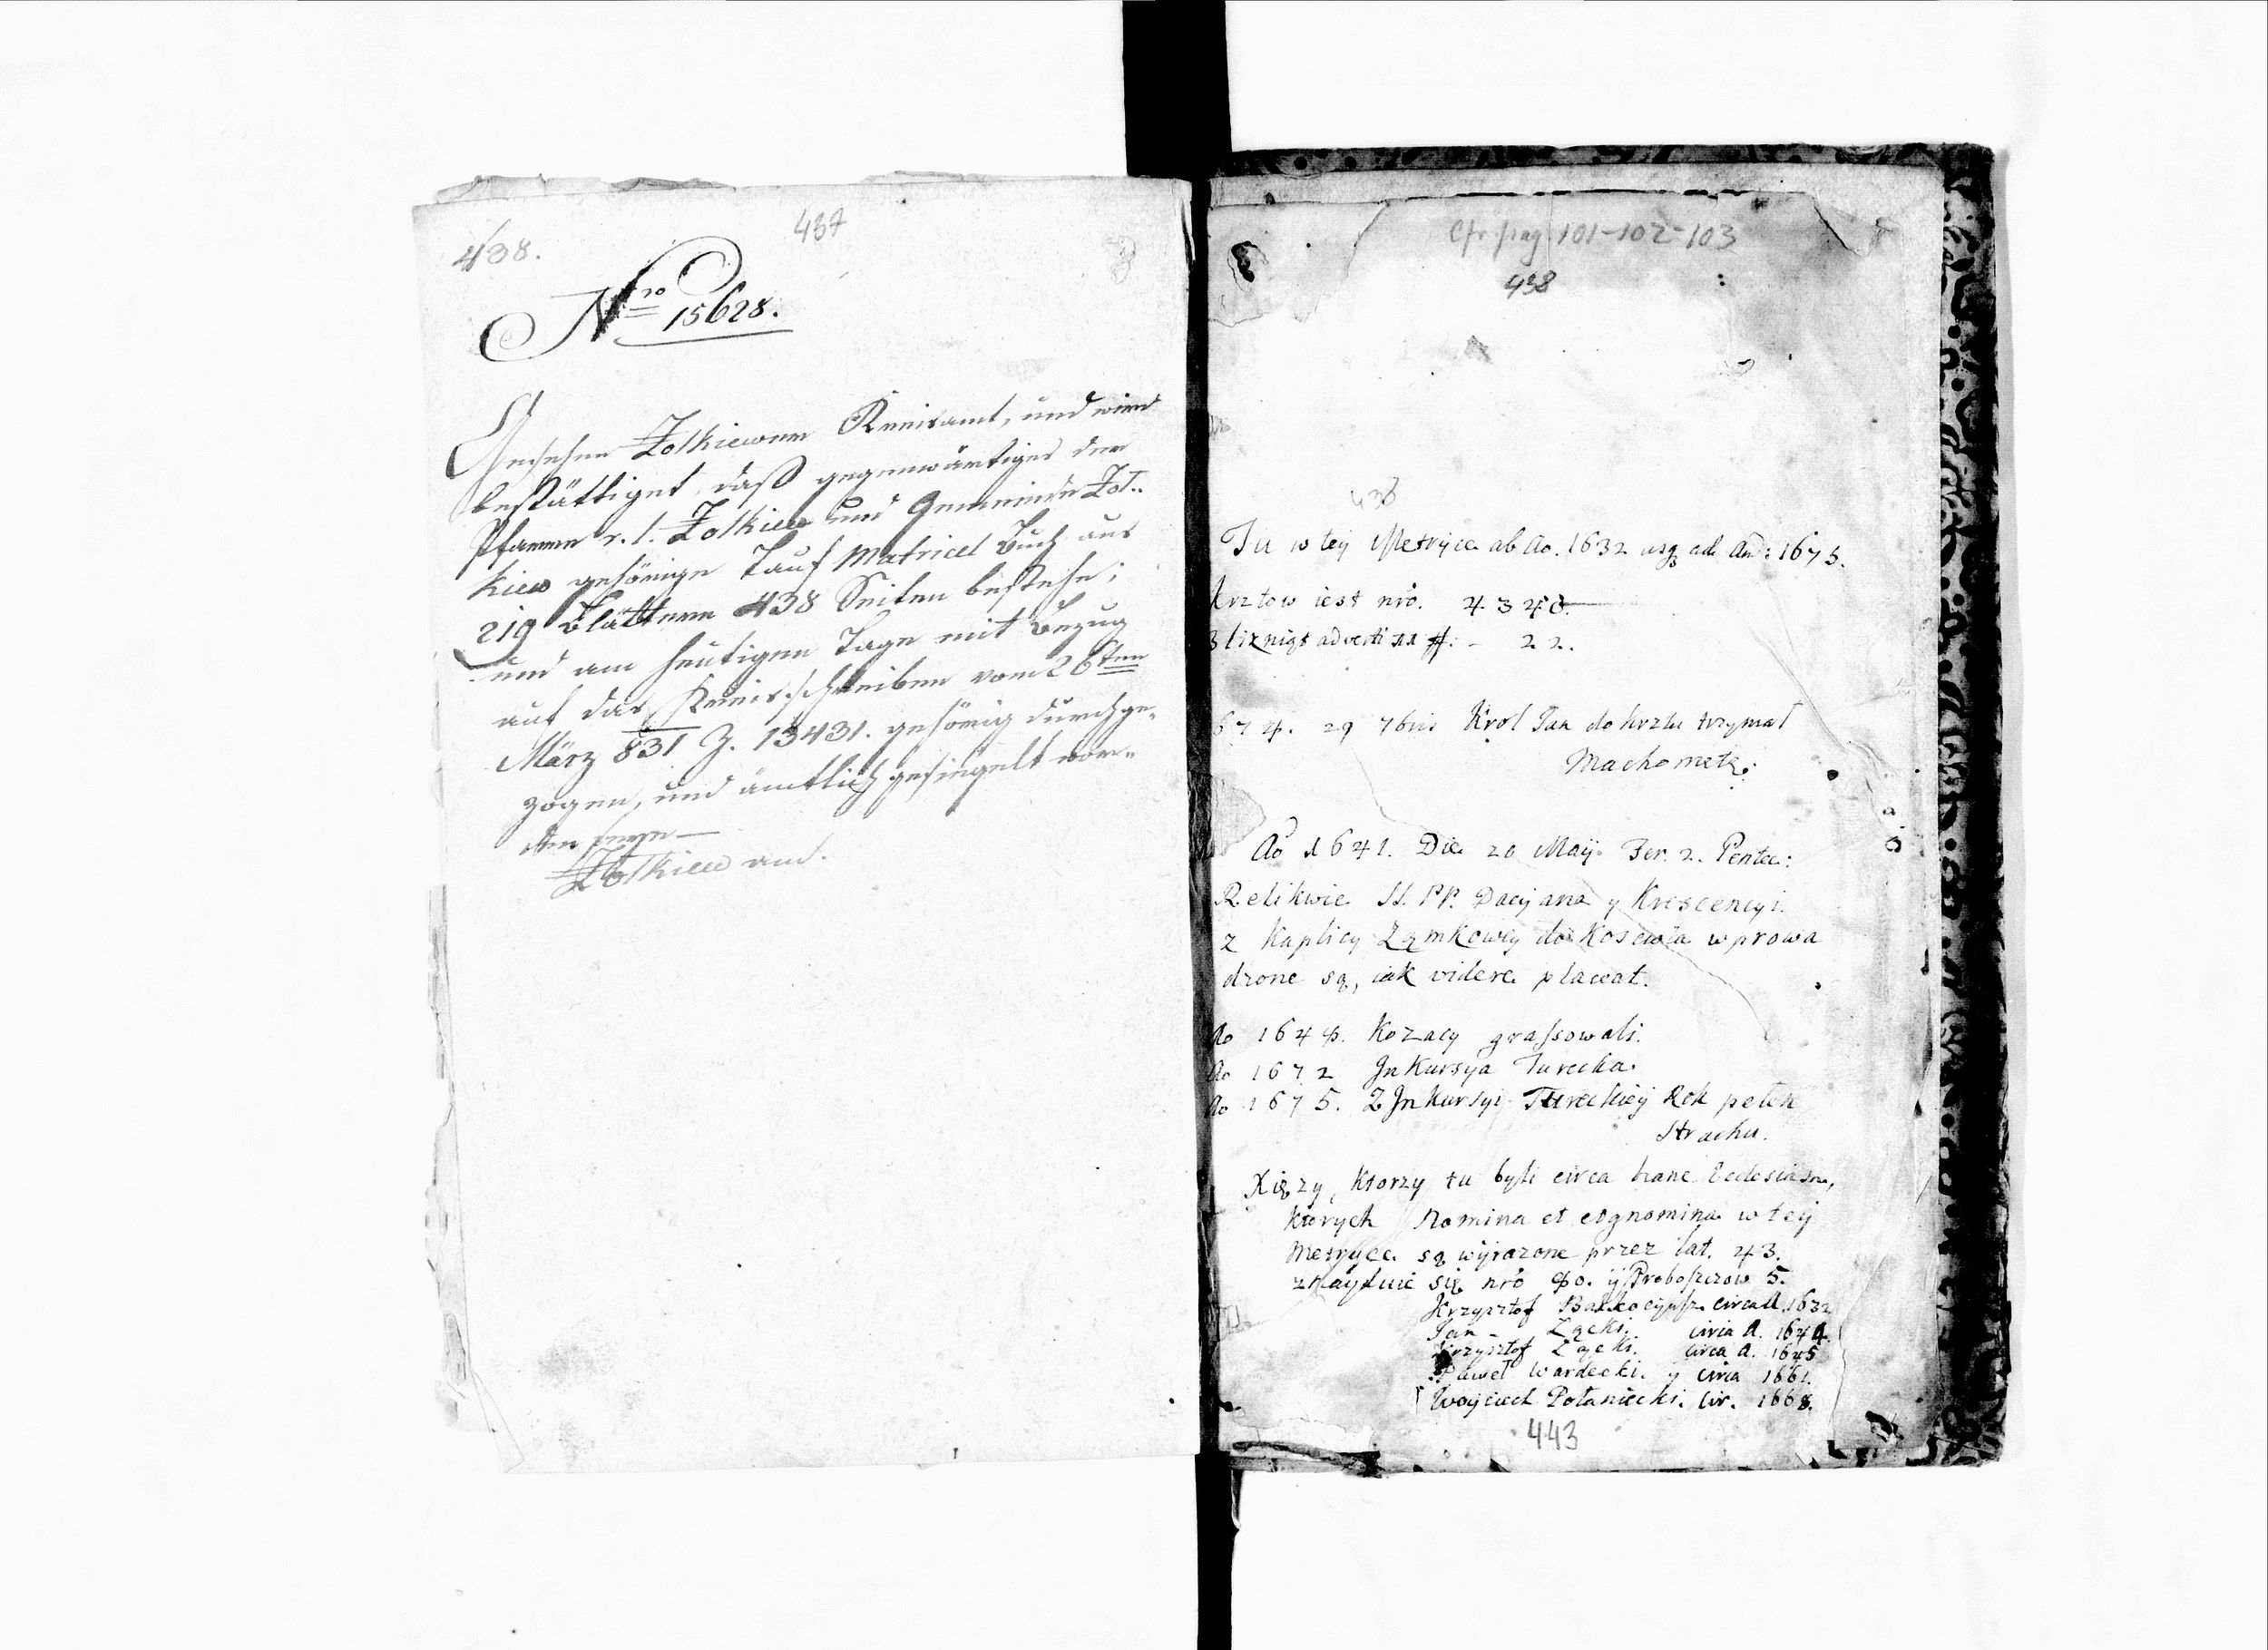 438.
437
Nro 15628.
Gesehen Zolkiewer Kreisamt, und wird
bestättiget, daß gegenwärtiges der
Pfarre r. l. Zolkiew und Gemeinde Zol-
kiew gehörige Tauf Matricel Buch aus
219 Blättern 438 Seiten bestehe;
und am heutigen Tage mit Bezug
auf das Kreisschreiben vom 26ten
März 831 Z. 13431. gehörig durchge-
zogen, und ämtlich gesiegelt wor-
den seye—
Zolkiew am.
Cfr pag. 101-102-103
438
438
Tu w tey Metryce ab Ao. 1632 usq ad An: 1675.
krztow iest nro. 4340.
Bliznigt adverti - 22.
674. 29 7bris Krol Jan do krztu trzymał
Machometę.
Ao 1641. Die 20 Maij Fer. 2. Pentec:
Relikwie SS. PP. Dacyana y Krescencyi.
z Kaplicy Zamkowey do Koscioła wprowa
dzone są, iak videre placeat.
Ao 1648. Kozacy grassowali.
Ao 1672 Inkursya Turecka.
Ao 1675. Z Inkursyi Tureckiey Rok pełen
Strachu.
Xięzy, ktorzy tu byli circa hanc Ecclesiam,
ktorych Nomina et cognomina w tey
Metryce są wyrazone przez lat. 43.
znayduie się nro 80. y Proboszczow 5.
Krzysztof circa A. 1632
Jan - Zącki. circa A. 1644.
Krzysztof Zącki. circa A. 1645
Paweł Wardecki. y circa 1661.
Woyciech Połaniecki. cir. 1668.
443